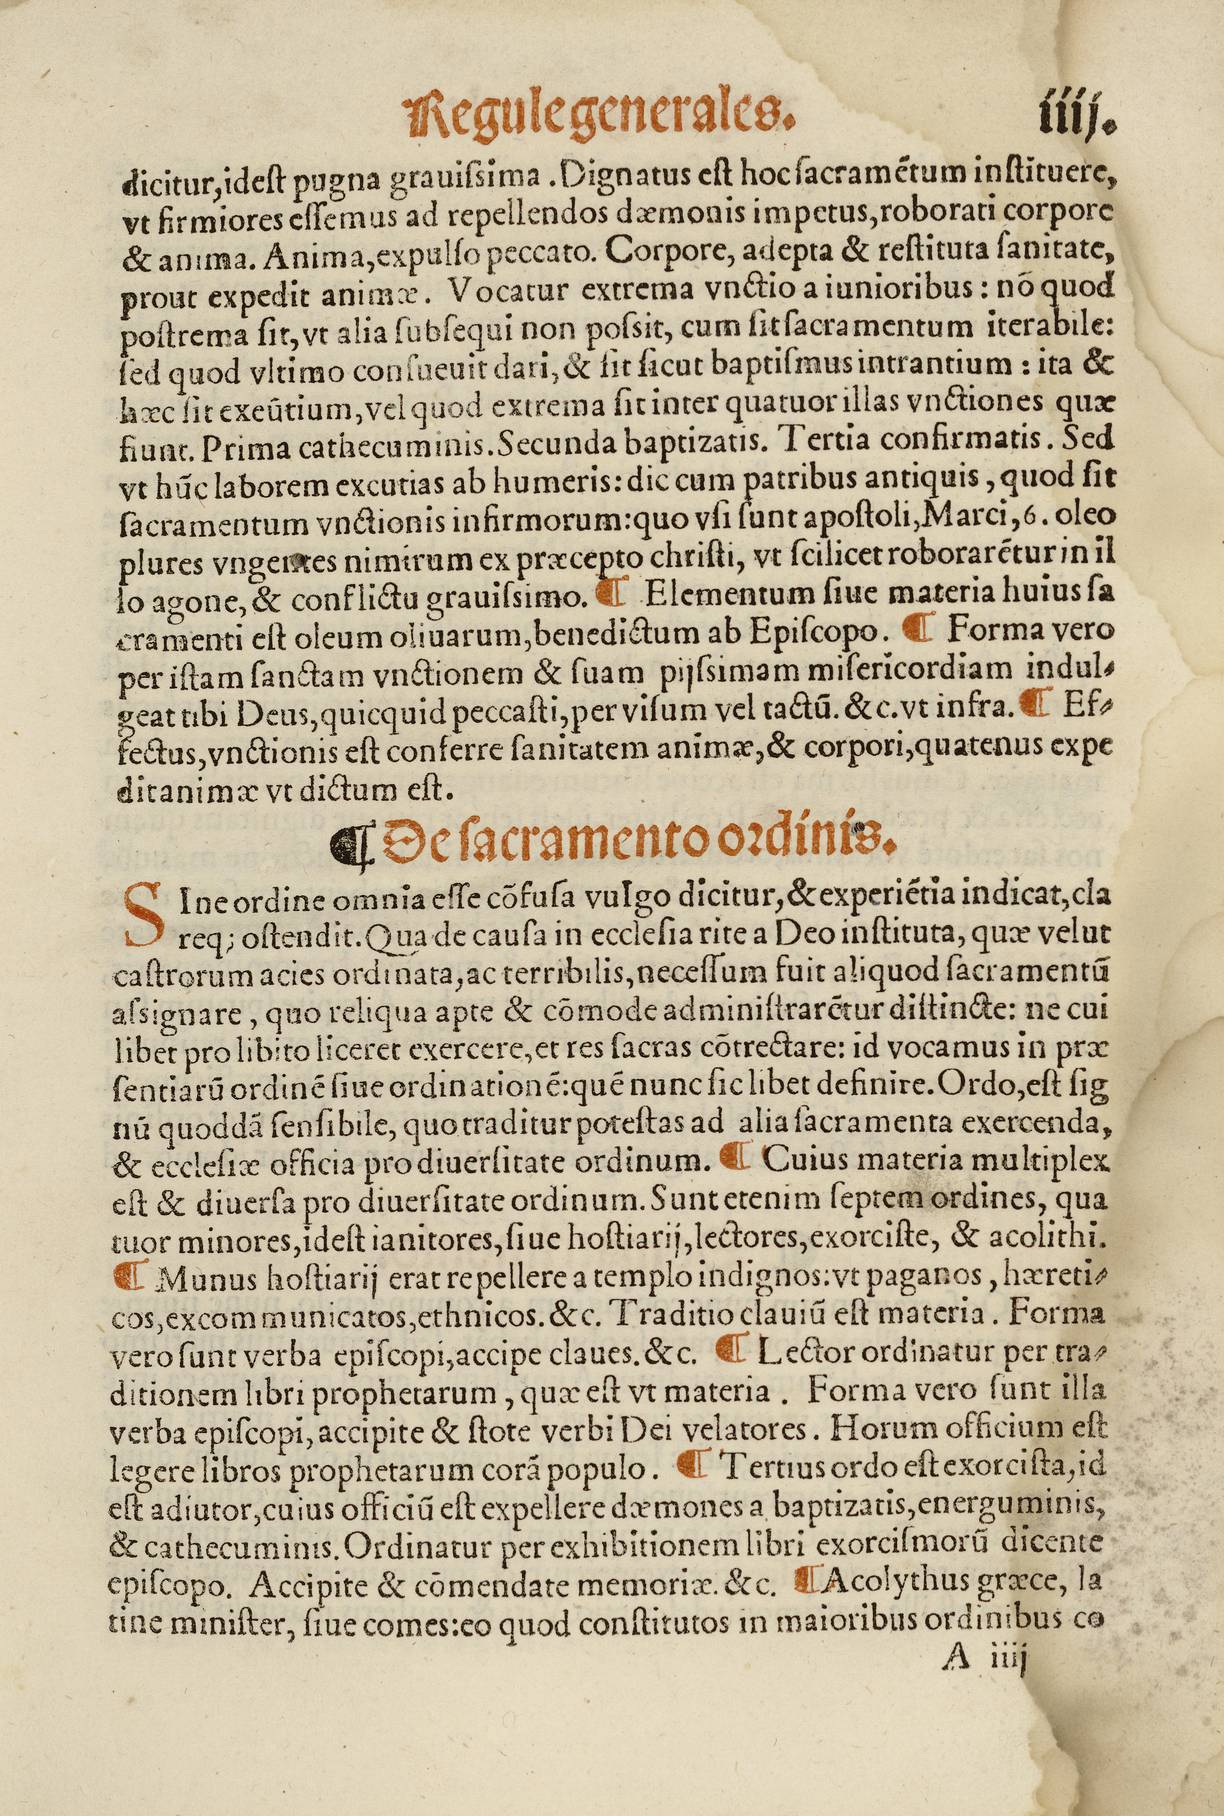 Regule generales. iiij.
dicitur, id est pugna grauiſsima. Dignatus est hoc ſacramētum inſtituere,
vt firmiores eſſemus ad repellendos dæmonis impetus, roborati corpore
& anima. Anima, expulſo peccato. Corpore, adepta & reſtituta ſanitate,
prout expedit animæ. Vocatur extrema vnctio a iunioribus: nō quod
poſtrema ſit, vt alia ſubſequi non poſsit, cum ſit ſacramentum iterabile:
ſed quod vltimo conſueuit dari, & ſit ſicut baptiſmus intrantium: ita &
hæc ſit exeūtium, vel quod extrema ſit inter quatuor illas vnctiones quæ
fiunt. Prima cathecuminis. Secunda baptizatis. Tertia confirmatis. Sed
vt hūc laborem excutias ab humeris: dic cum patribus antiquis, quod ſit
ſacramentum vnctionis infirmorum: quo vſi ſunt apoſtoli, Marci, 6. oleo
plures vngentes nimirum ex præcepto chriſti, vt ſcilicet roborarētur in il
lo agone, & conflictu grauiſsimo. ¶ Elementum ſiue materia huius ſa
cramenti eſt oleum oliuarum, benedictum ab Epiſcopo. ¶ Forma vero
per iſtam ſanctam vnctionem & ſuam pijſsimam miſericordiam indul⸗
geat tibi Deus, quicquid peccaſti, per viſum vel tactū. &c. vt infra. ¶ Ef⸗
fectus, vnctionis eſt conferre ſanitatem animæ, & corpori, quatenus expe
dit animæ vt dictum eſt.
¶ De ſacramento ordinis.
SIne ordine omnia eſſe cōfuſa vulgo dicitur, & experiētia indicat, cla
req; oſtendit. Qua de cauſa in eccleſia rite a Deo inſtituta, quæ velut
caſtrorum acies ordinata, ac terribilis, neceſſum fuit aliquod ſacramentū
aſsignare, quo reliqua apte & cōmode adminiſtrarētur diſtincte: ne cui
libet pro libito liceret exercere, et res ſacras cōtrectare: id vocamus in præ
ſentiarū ordinē ſiue ordinationē: quē nunc ſic libet definire. Ordo, eſt ſig
nū quoddā ſenſibile, quo traditur poteſtas ad alia ſacramenta exercenda,
& eccleſiæ officia pro diuerſitate ordinum. ¶ Cuius materia multiplex
eſt & diuerſa pro diuerſitate ordinum. Sunt etenim ſeptem ordines, qua
tuor minores, id eſt ianitores, ſiue hoſtiarij, lectores, exorciſte, & acolithi.
¶ Munus hoſtiarij erat repellere a templo indignos: vt paganos, hæreti⸗
cos, excommunicatos, ethnicos. &c. Traditio clauiū eſt materia. Forma
vero ſunt verba epiſcopi, accipe claues. &c. ¶ Lector ordinatur per tra⸗
ditionem libri prophetarum, quæ eſt vt materia. Forma vero ſunt illa
verba epiſcopi, accipite & ſtote verbi Dei velatores. Horum officium eſt
legere libros prophetarum corā populo. ¶ Tertius ordo eſt exorciſta, id
eſt adiutor, cuius officiū eſt expellere dæmones a baptizatis, energuminis,
& cathecuminis. Ordinatur per exhibitionem libri exorciſmorū dicente
epiſcopo. Accipite & cōmendate memoriæ. &c. ¶ Acolythus græce, la
tine miniſter, ſiue comes: eo quod conſtitutos in maioribus ordinibus co
A iiij